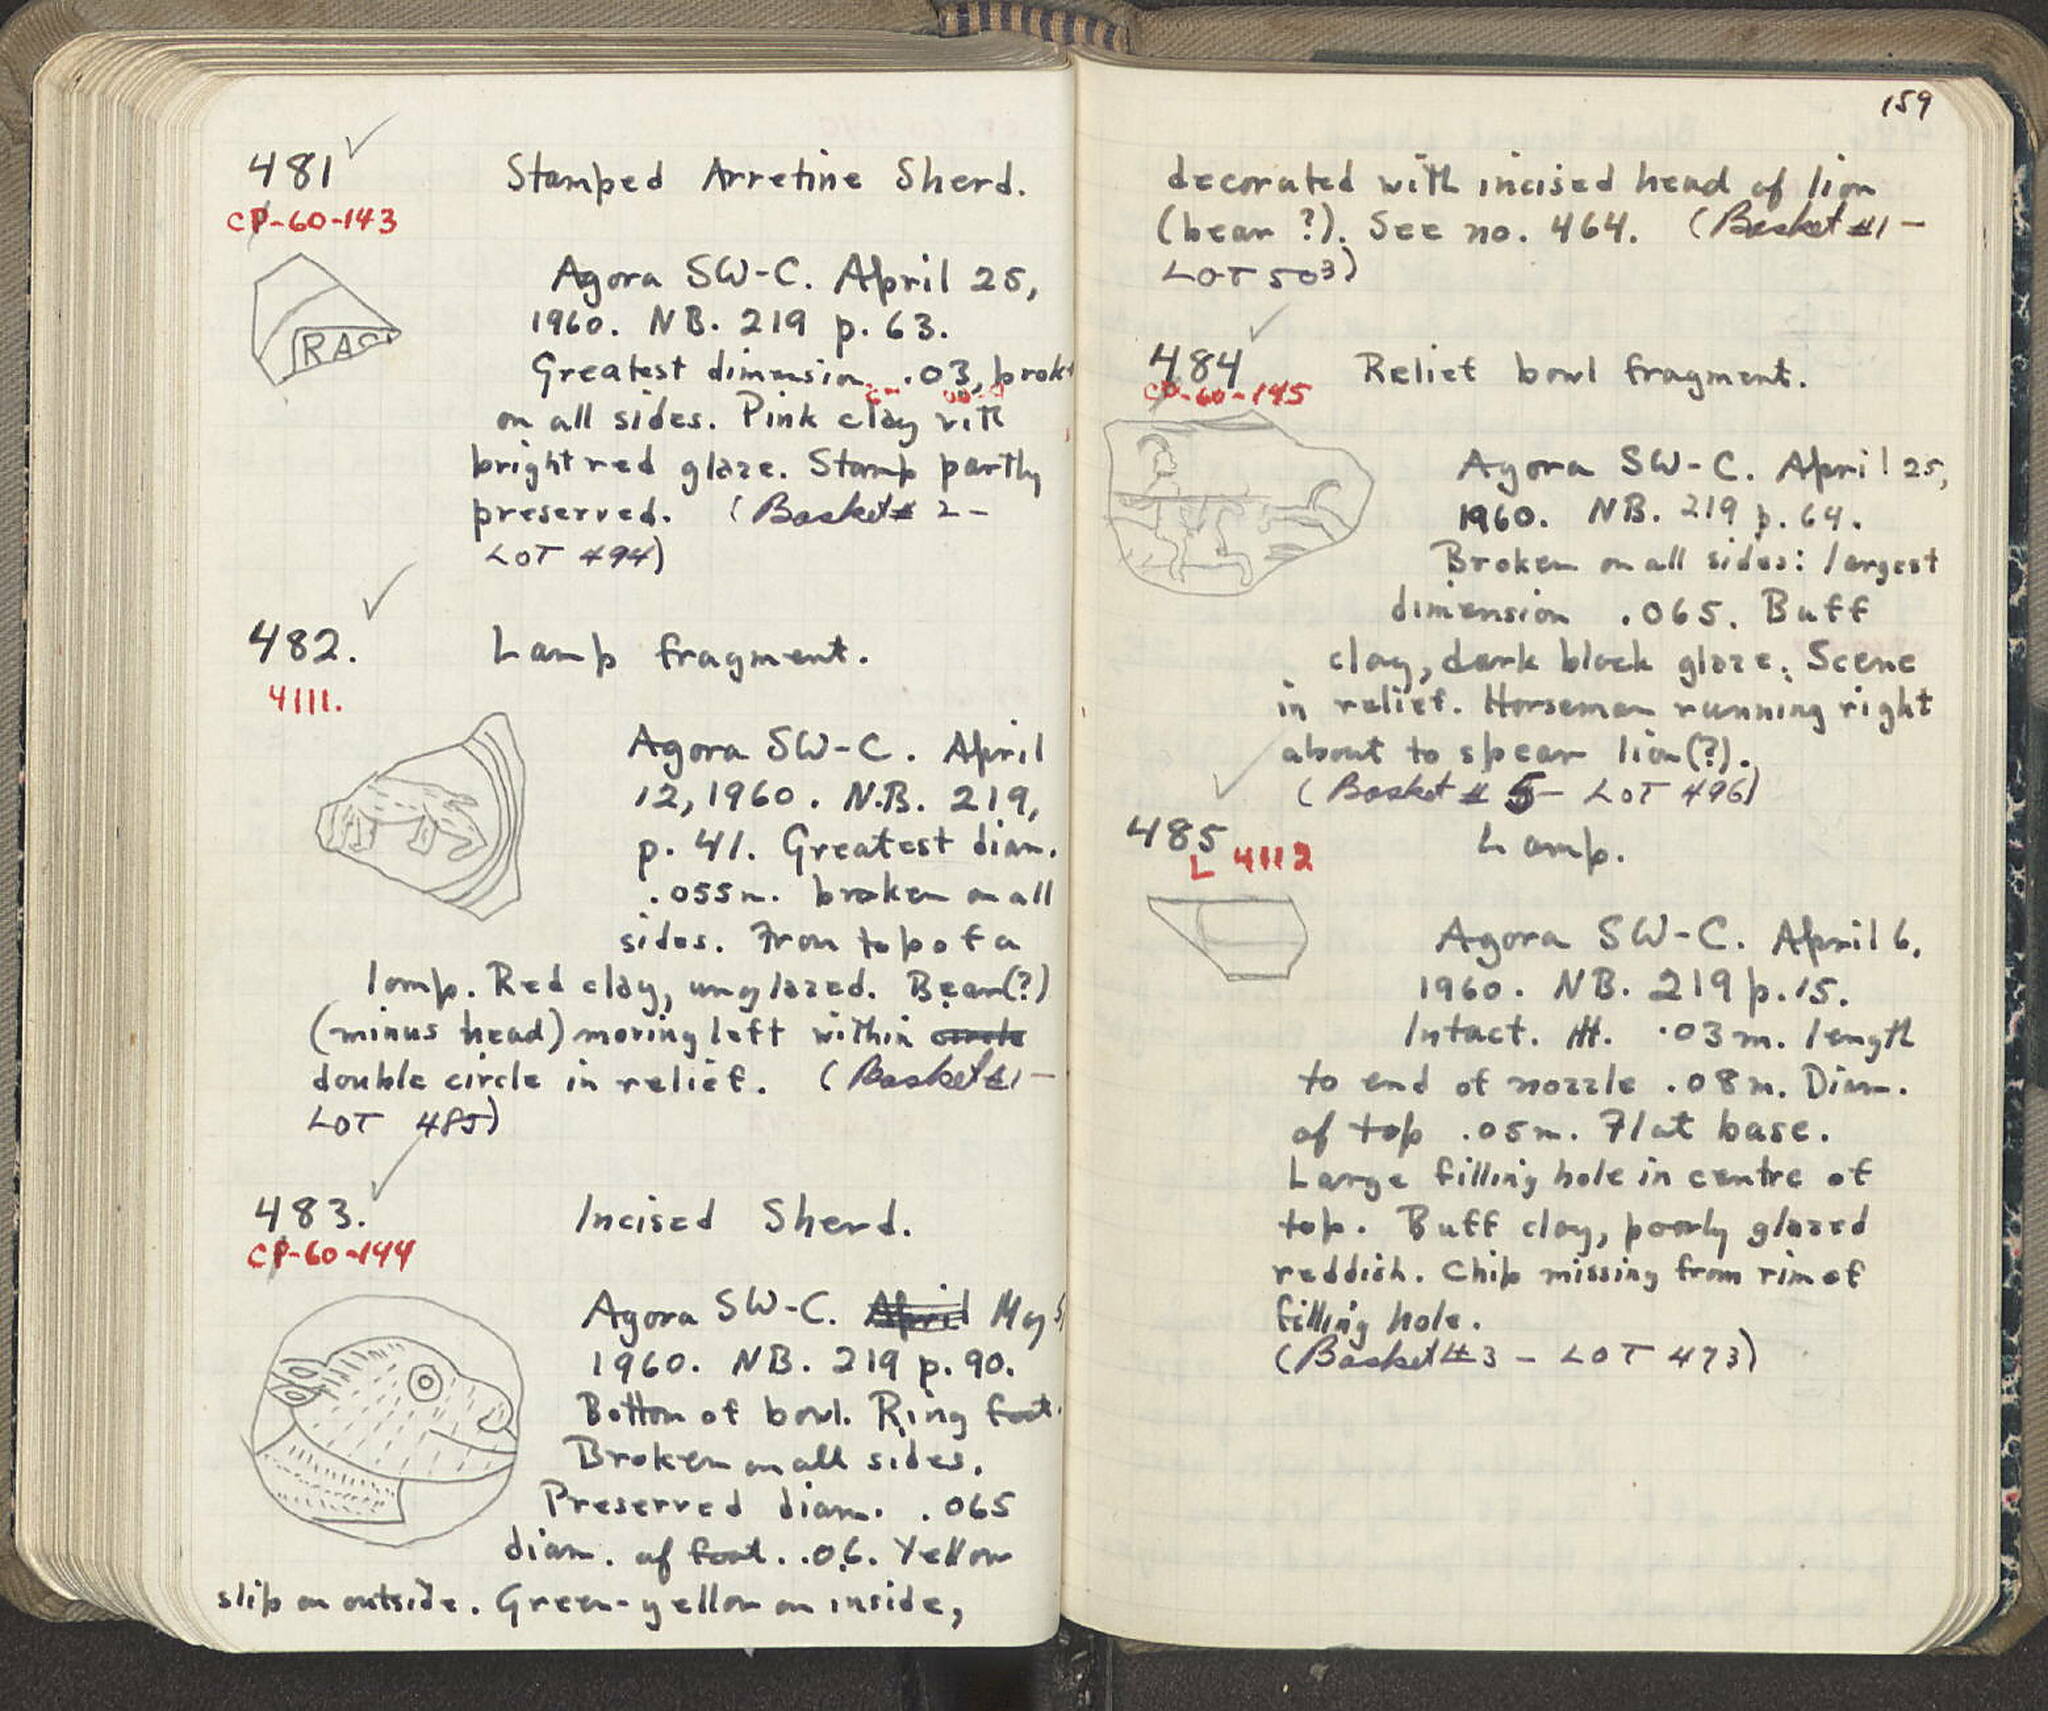 481
Stamped Arretine Sherd.
CP-60-143
RAC
Agora SW-C. April 25,
1960. NB. 219 p. 63.
Greatest dimension .03, brok
on all sides. Pink clay with
bright red glaze. Stamp partly
preserved. (Basket # 2 -
LOT 494)
482.
Lamp fragment.
4111.
Agora SW-C. April
12, 1960. N.B. 219,
p. 41. Greatest diam.
.055m. broken on all
sides. From top of a
lamp. Red clay, unglazed. Bear(?)
(minus head) moving left within circle
double circle in relief. (Basket #1 -
LOT 485)
483.
Incised Sherd.
CP-60-144
Agora SW-C. April May 5,
1960. NB. 219 p. 90.
Bottom of bowl. Ring foot.
Broken on all sides.
Preserved diam. .065
diam. of foot. .06. Yellow
slip on outside. Green-yellow on inside,
159
decorated with incised head of lion
(bear ?). See no. 464. (Basket #1 -
LOT 503)
484
Relief bowl fragment.
CP-60-145
Agora SW-C. April 25,
1960. NB. 219 p. 64.
Broken on all sides: largest
dimension .065. Buff
clay, dark black glaze. Scene
in relief. Horseman running right
about to spear lion(?).
(Basket # 5 - LOT 496)
485
Lamp.
L 4112
Agora SW-C. April 6,
1960. NB. 219 p. 15.
Intact. Ht. .03m. length
to end of nozzle .08m. Diam.
of top .05m. Flat base.
Large filling hole in centre of
top. Buff clay, poorly glazed
reddish. Chip missing from rim of
filling hole.
(Basket #3 - LOT 473)